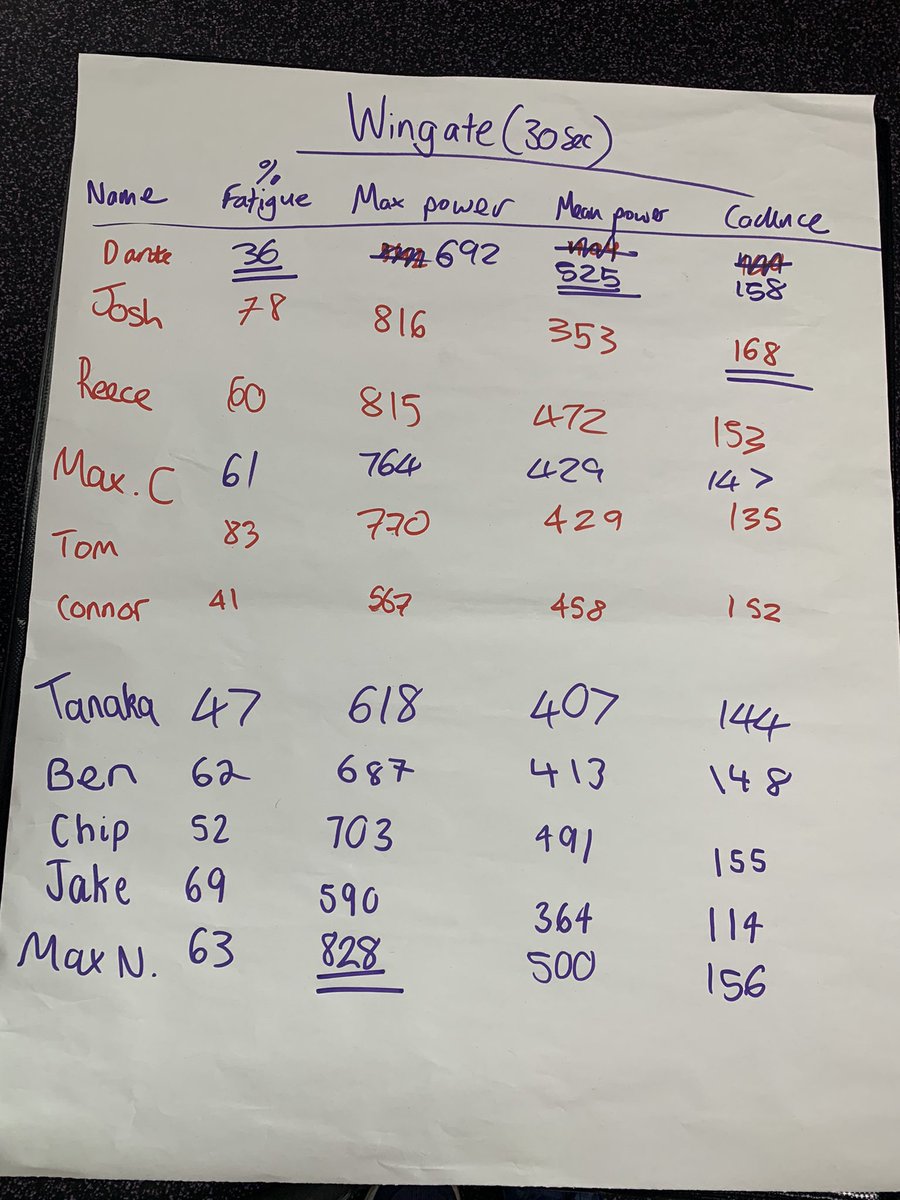 Wingate (30sec)
Name % Fatigue Max power Mean power Cadence
Dante 36 692 525 158
Josh 78 816 353 168
Reece 60 815 472 153
Max. C 61 764 429 147
Tom 83 770 429 135
Connor 41 567 458 152
Tanaka 47 618 407 144
Ben 62 687 413 148
Chip 52 703 491 155
Jake 69 590 364 114
Max N. 63 828 500 156